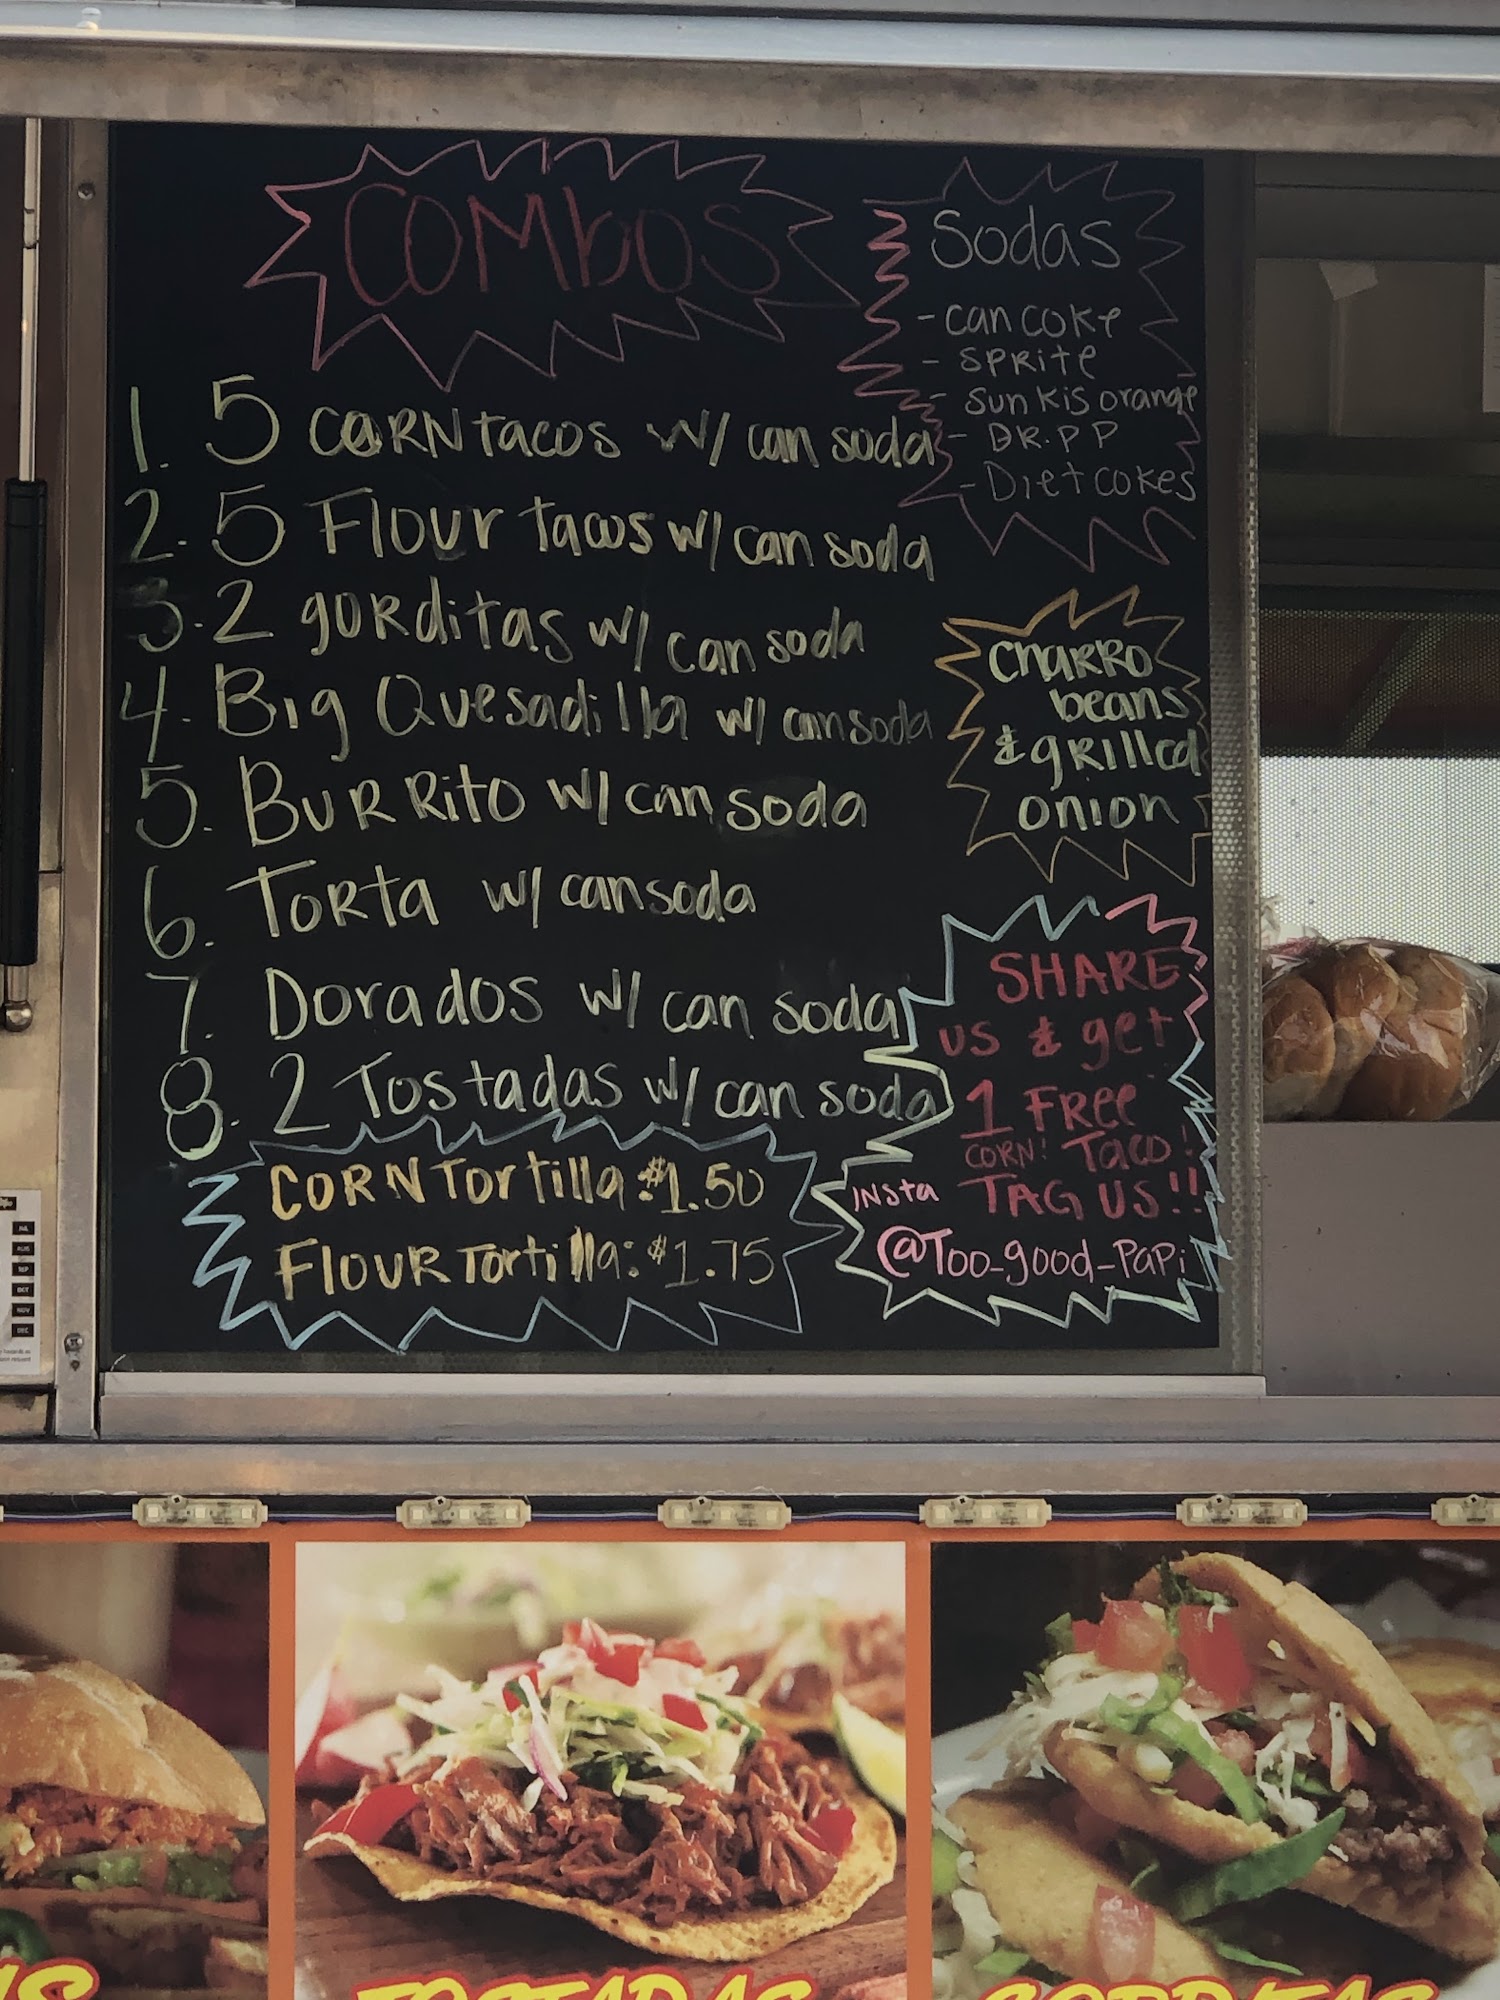 COMbOS
1. 5 CORN tacos w/ can soda
2. 5 Flour tacos w/ can soda
3. 2 gorditas w/ can soda
4. Big Quesadilla w/ can soda
5. BURRito w/ can soda
6. TORta w/ can soda
7. Dorados w/ can soda
8. 2 Tostadas w/ can soda
CORN Tortilla: $1.50
FLOUR Tortilla: $1.75
Sodas
- can coke
- SPRite
- Sunkis orange
- DR. PP
- Diet cokes
CHARRO
beans
& gRilled
onion
SHARE
us & get
1 FRee
CORN! Taco!
TAG US!!
INSta
@Too_good_Papi
TOSTADAS
GORDITAS